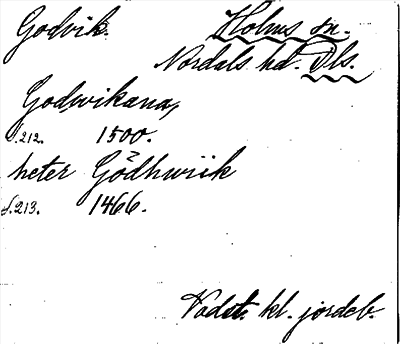 Godvik. Holms sn.
Nordals hd. Dls.
Godwikana,
s.212. 1500.
heter Gödhwiik
s.213. 1466.
Vadst. kl. jordeb.